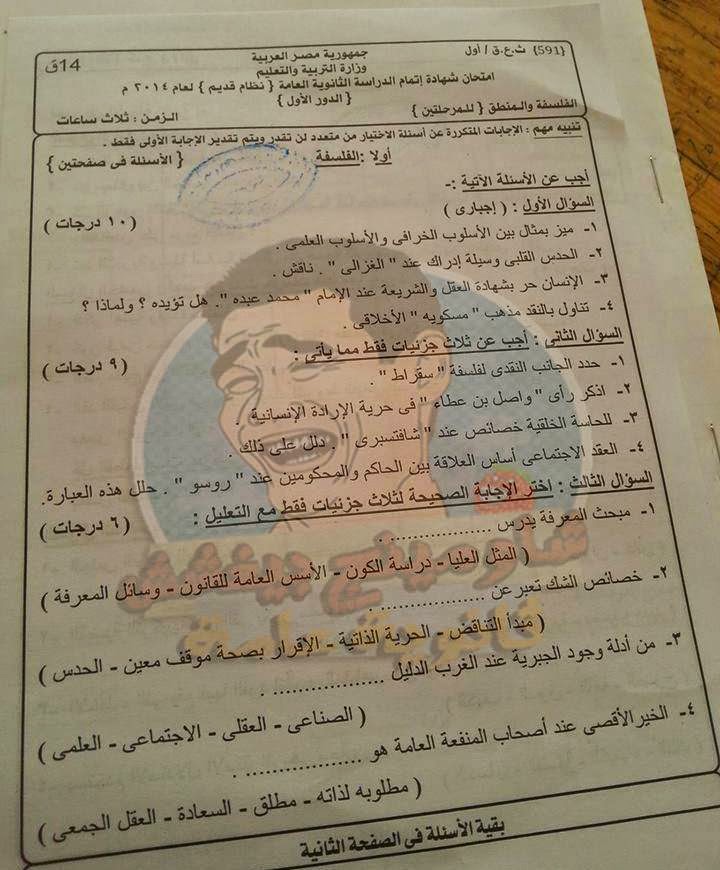 {591} ث.ع.ق / أول
جمهورية مصر العربية
وزارة التربية والتعليم
14ق
امتحان شهادة إتمام الدراسة الثانوية العامة { نظام قديم } لعام ٢٠١٤ م
{ الدور الأول }
الفلسفة والمنطق { للمرحلتين }
الزمن : ثلاث ساعات
تنبيه مهم : الإجابات المتكررة عن أسئلة الاختيار من متعدد لن تقدر ويتم تقدير الإجابة الأولى فقط .
أولا : الفلسفة
{ الأسئلة فى صفحتين }
أجب عن الأسئلة الآتية :-
السؤال الأول : ( إجبارى )
( ١٠ درجات )
١- ميز بمثال بين الأسلوب الخرافى والأسلوب العلمى .
٢- الحدس القلبى وسيلة إدراك عند " الغزالى " . ناقش .
٣- الإنسان حر بشهادة العقل والشريعة عند الإمام " محمد عبده ". هل تؤيده ؟ ولماذا ؟
٤- تناول بالنقد مذهب " مسكويه " الأخلاقى .
السؤال الثانى : أجب عن ثلاث جزئيات فقط مما يأتى :
( ٩ درجات )
١- حدد الجانب النقدى لفلسفة " سقراط " .
٢- اذكر رأى " واصل بن عطاء " فى حرية الإرادة الإنسانية .
٣- للحاسة الخلقية خصائص عند " شافتسبرى " . دلل على ذلك .
٤- العقد الاجتماعى أساس العلاقة بين الحاكم والمحكومين عند " روسو " . حلل هذه العبارة.
السؤال الثالث : اختر الإجابة الصحيحة لثلاث جزئيات فقط مع التعليل :
( ٦ درجات )
١- مبحث المعرفة يدرس .................. .
( المثل العليا - دراسة الكون - الأسس العامة للقانون - وسائل المعرفة )
٢- خصائص الشك تعبر عن .................. .
( مبدأ التناقض - الحرية الذاتية - الإقرار بصحة موقف معين - الحدس )
٣- من أدلة وجود الجبرية عند الغرب الدليل .................. .
( الصناعى - العقلى - الاجتماعى - العلمى )
٤- الخير الأقصى عند أصحاب المنفعة العامة هو .................. .
( مطلوبه لذاته - مطلق - السعادة - العقل الجمعى )
بقية الأسئلة فى الصفحة الثانية
شاومينج بيغشش
ثانوية عامة